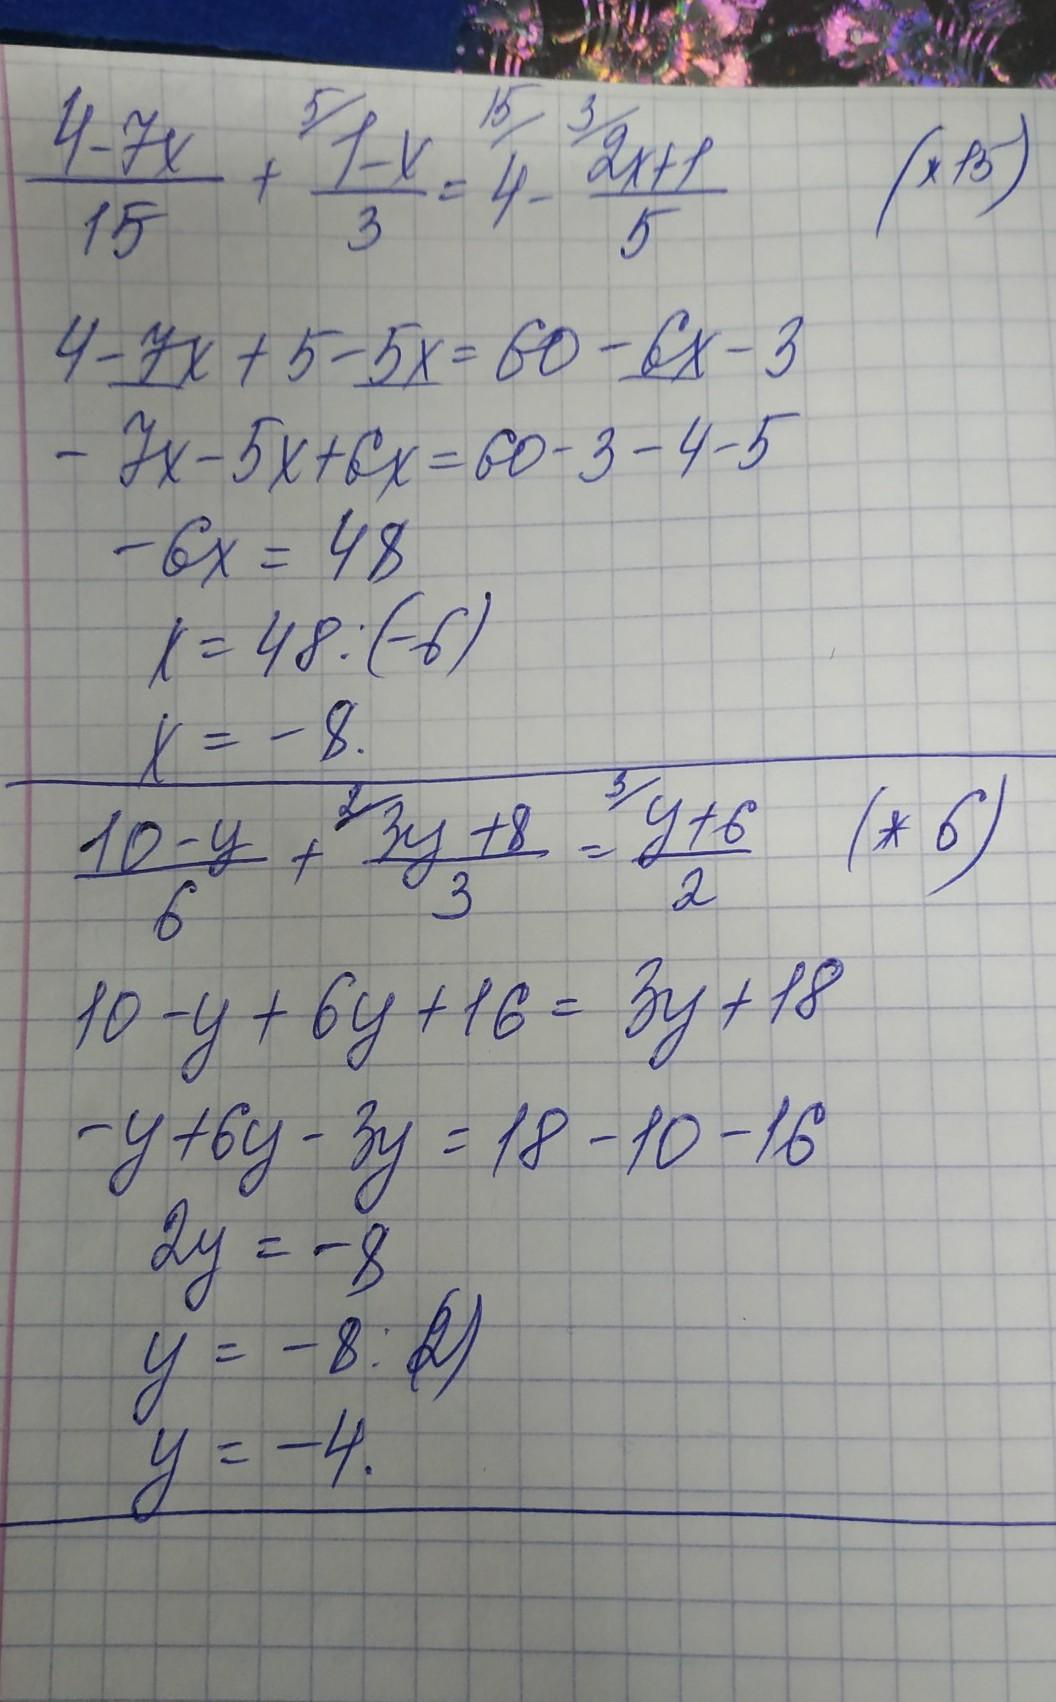 (4-7x)/15 + 5/ (1-x)/3 = 15/ 4 - 3/ (2x+1)/5 (*15)
4-7x+5-5x=60-6x-3
-7x-5x+6x=60-3-4-5
-6x=48
x=48:(-6)
x=-8.
(10-y)/6 + 2/ (3y+8)/3 = 3/ (y+6)/2 (*6)
10-y+6y+16=3y+18
-y+6y-3y=18-10-16
2y=-8
y=-8:(2)
y=-4.